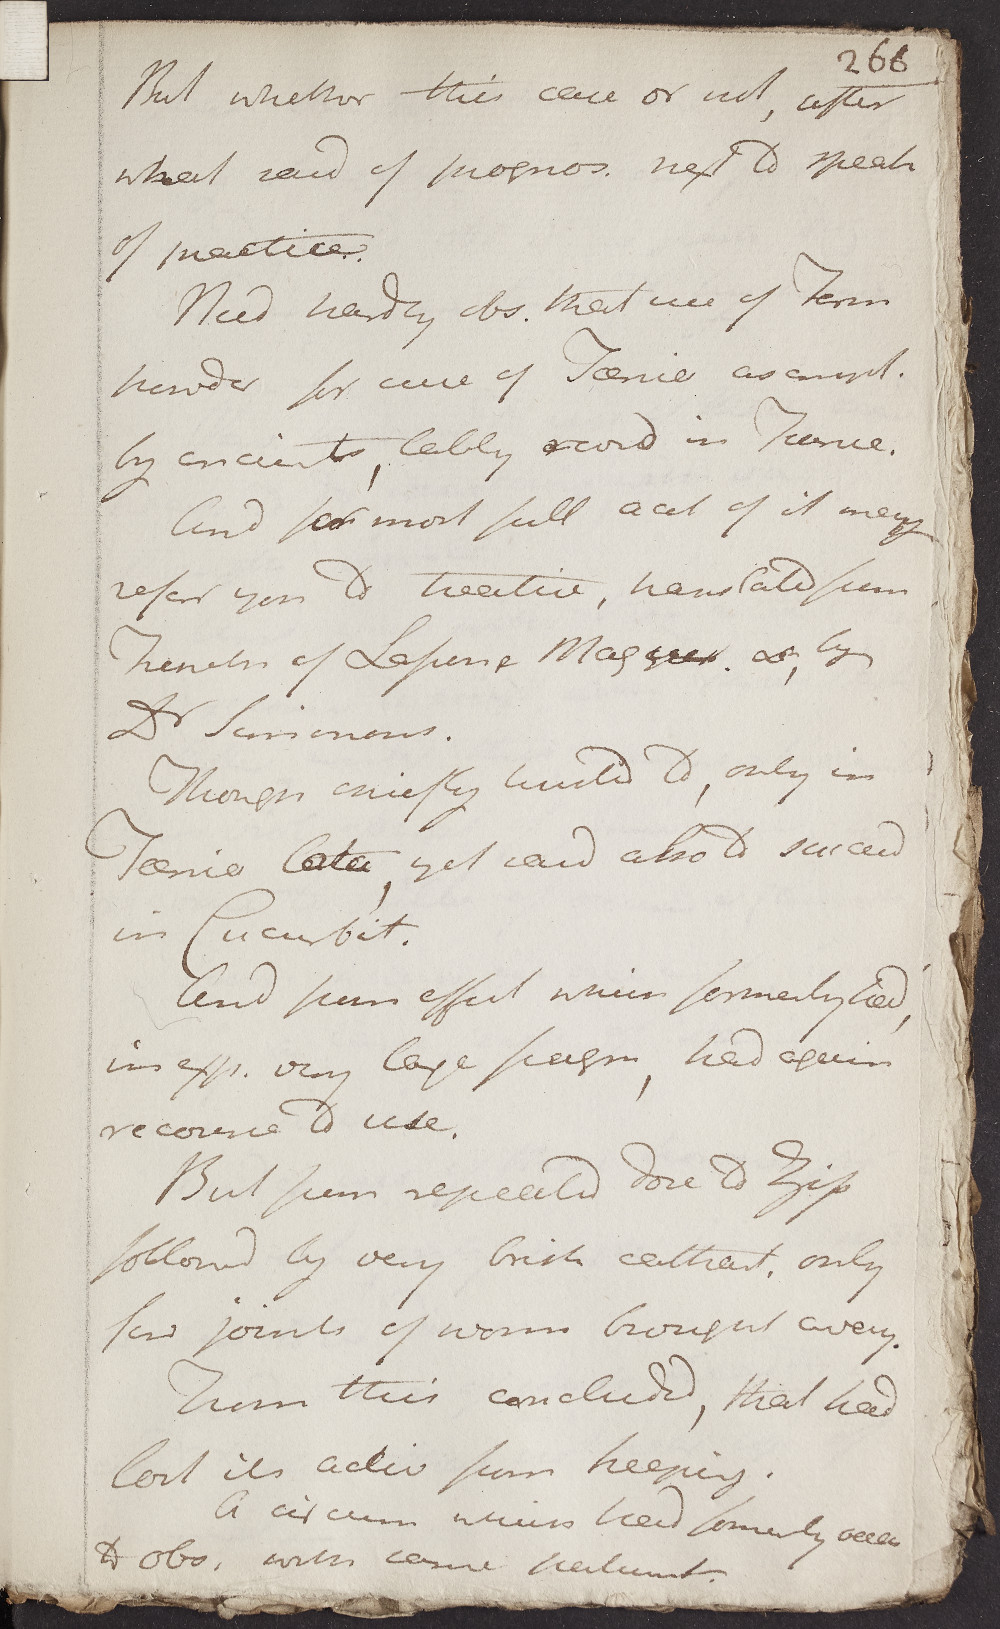 266
But whether this case or not, after
what said of prognos. next to speak
of practice.
Need hardly obs. that use of Fern
powder for cure of Taenia as empl.
by ancients, lately record in France.
And for most full acct of it may
refer you to treatise, translated from
French of Lafosse &, by
Dr Simmons.
Though chiefly trusted to, only in
Taenia lata, yet said also to succeed
in Cucurbit.
And from effect which formerly had,
in exp. very large, had again
recourse to use.
But from repeated dose to ʒiiſs
followed by very brisk cathart. only
few joints of worm brought away.
From this concluded, that had
lost its activ from keeping.
A circum which had formerly occas
to obs. with same patient.